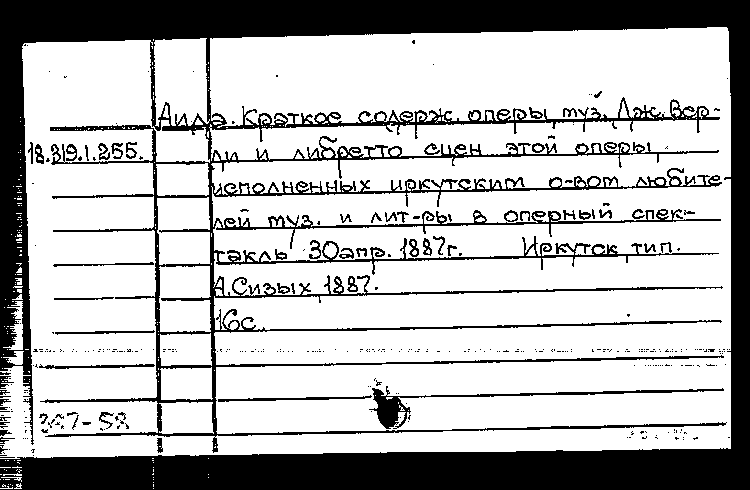 Аида. Краткое содерж. оперы, муз. Дж. Вер-
18.319.1.255.
ди и либретто сцен этой оперы,
исполненных иркутским о-вом любите-
лей муз. и лит-ры в оперный спек-
такль 30 апр. 1887г. Иркутск, тип.
А. Сизых, 1887.
16с.
347-58